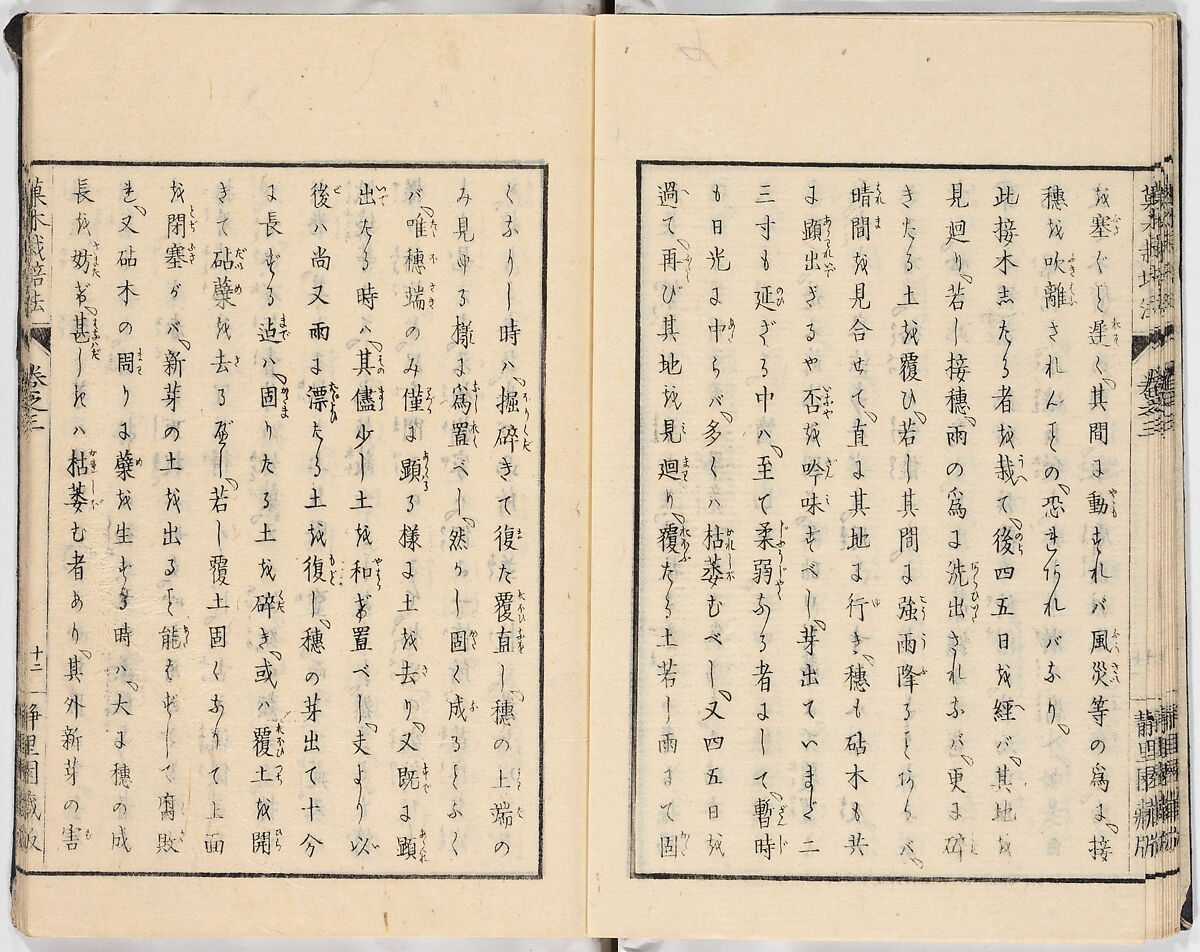 を塞ぐこと遅く、其間に動もすれバ風災等の為に、接
穂を吹離されんことの、恐れあれバなり、
此接木したる者を栽て、後四五日を経バ、其地を
見廻り、若し接穂、雨の為に洗出されなバ、更に砕
きたる土を覆ひ、若し其間に強雨降ることあらバ、
晴間を見合せて、直に其地に行き、穂も砧木も共
に顕出ざるや否を吟味すべし、芽出ていまだ二
三寸も延ざる中ハ、至て柔弱なる者にして、暫時
も日光に中らバ、多くハ枯萎むべし、又四五日を
過て再び其地を見廻り、覆たる土若し雨にて固
くなりし時ハ、掘砕きて復た覆直し、穂の上端の
み見ゆる様に為置べし、然りし固く成ることなく
バ、唯穂端のみ僅に顕る様に土を去り、又既に顕
出たる時ハ、其儘少し土を和げ置べし、夫より以
後ハ尚又雨に漂たる土を復し、穂の芽出て十分
に長ずる迠ハ、固りたる土を砕き、或ハ覆土を開
きて砧蘗を去るべし、若し覆土固くなりて上面
を閉塞がバ、新芽の土を出ること能はずして腐敗
す、又砧木の周りに蘗を生ずる時ハ、大に穂の成
長を妨げ、甚しきハ枯萎む者あり、其外新芽の害
菓木栽培法
巻之三
十二
静里園蔵版